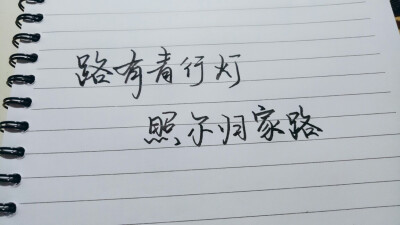 路有青行灯
照尔归家路